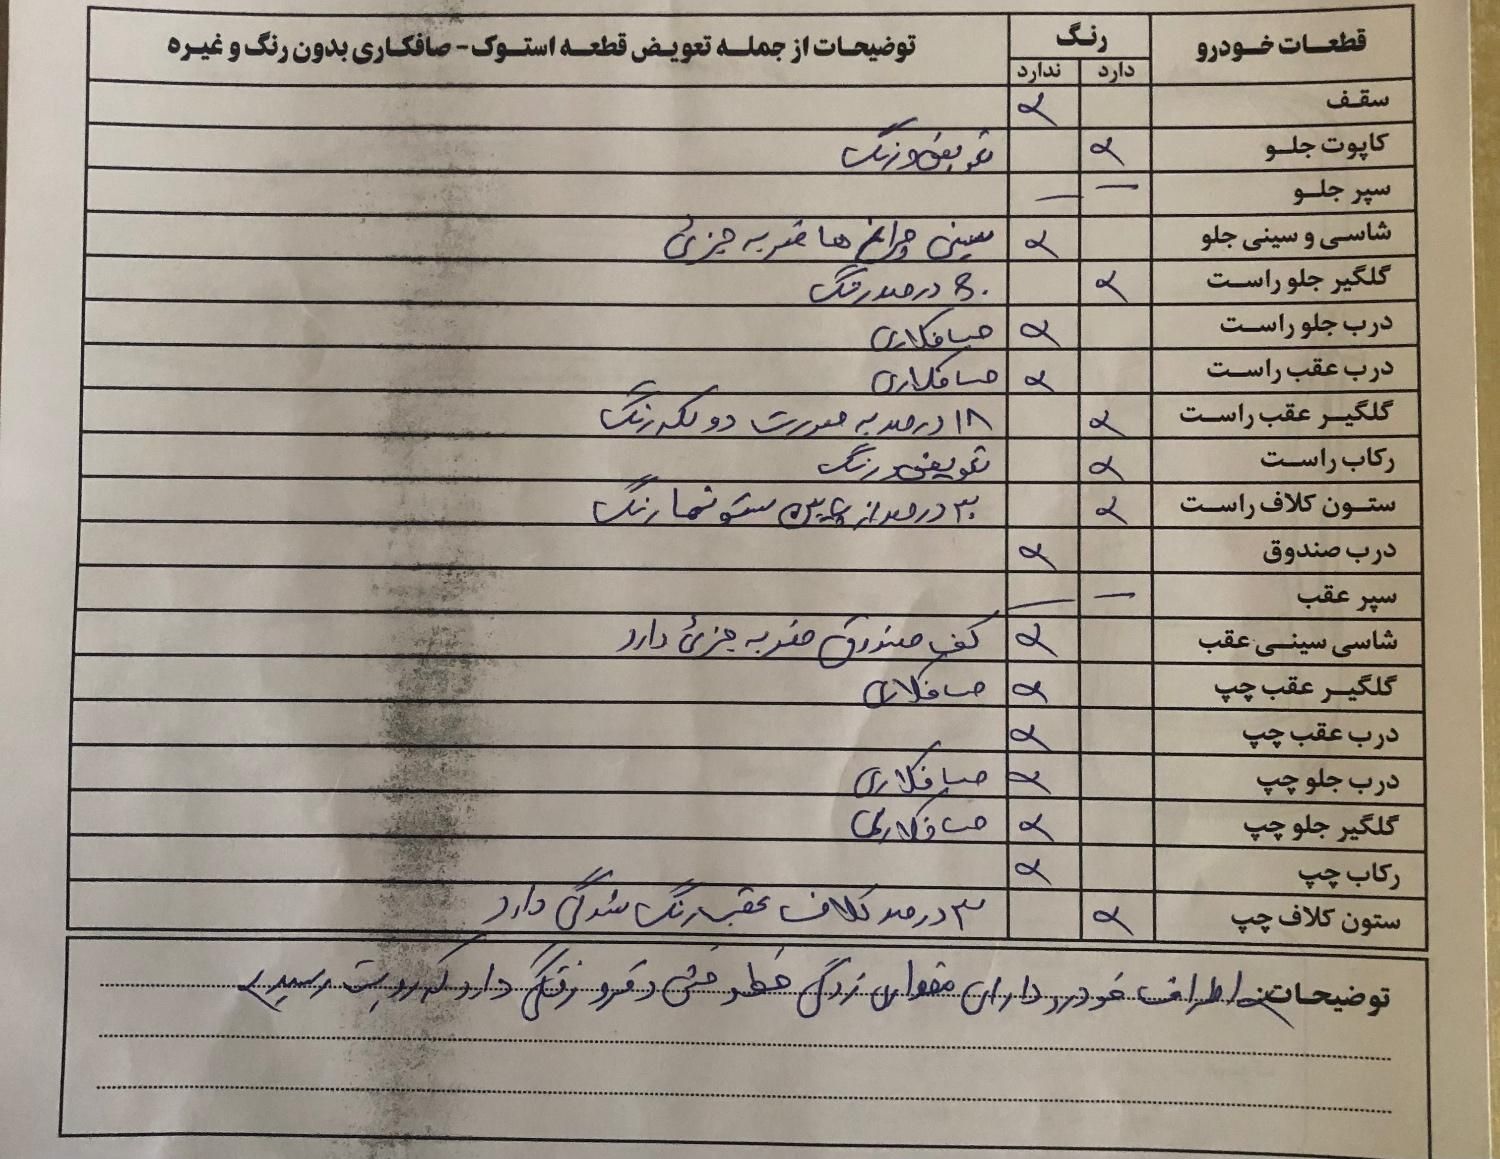 قطعات خودرو رنگ توضیحات از جمله تعویض قطعه استوک - صافکاری بدون رنگ و غیره
دارد ندارد
سقف
کاپوت جلو تعویض و رنگ
سپر جلو — —
شاسی و سینی جلو سینی چراغ ها ضربه جزئی
گلگیر جلو راست درصد رنگ
درب جلو راست صافکاری
درب عقب راست صافکاری
گلگیر عقب راست ۱۸ درصد به صورت دو لکه رنگ
رکاب راست تعویض و رنگ
ستون کلاف راست ۳۰ درصد از پایین ستونها رنگ
درب صندوق
سپر عقب — —
شاسی سینی عقب کف صندوق ضربه جزئی دارد
گلگیر عقب چپ صافکاری
درب عقب چپ
درب جلو چپ صافکاری
گلگیر جلو چپ صافکاری
رکاب چپ
ستون کلاف چپ ۳ درصد کلاف عقب رنگ شدگی دارد
توضیحات: اطراف خودرو دارای مقداری زدگی خط و خش و فرو رفتگی دارد که رویت رسید